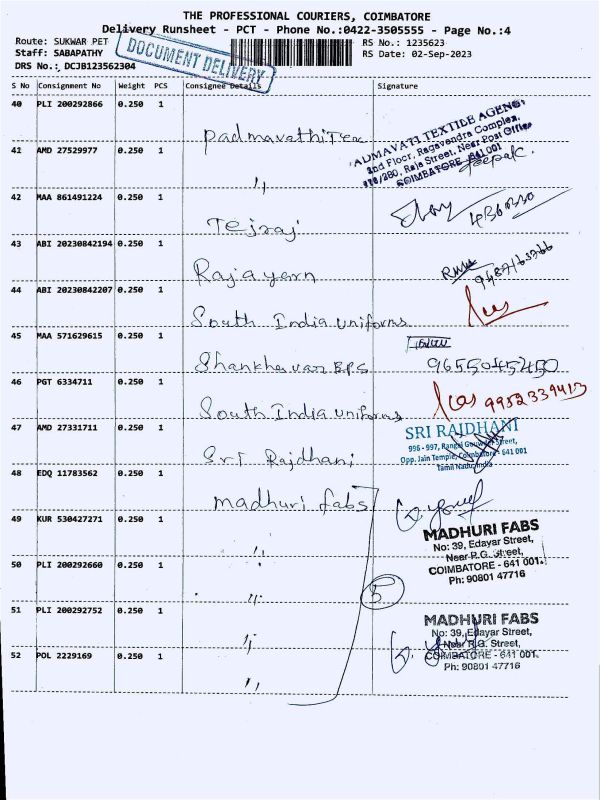 THE PROFESSIONAL COURIERS, COIMBATORE
Delivery Runsheet - PCT - Phone No.:0422-3505555 - Page No.:4
Route: SUKWAR PET
RS No.: 1235623
Staff: SABAPATHY
RS Date: 02-Sep-2023
DRS No.: DCJB123562304
DOCUMENT DELIVERY
S No Consignment No Weight PCS Consignee Details Signature
40 PLI 200292866 0.250 1
Padmavathi Tex
PADMAVATI TEXTILE AGENCY
2nd Floor, Ragavendra Complex,
Raja Street, Near Post Office
COIMBATORE - 641 001
Deepak.
41 AMD 27529977 0.250 1
"
42 MAA 861491224 0.250 1
Tejraj
43 ABI 20230842194 0.250 1
Raja yarn
44 ABI 20230842207 0.250 1
South India uniforms
45 MAA 571629615 0.250 1
9655045450
46 PGT 6334711 0.250 1
South India uniforms
9952339413
47 AMD 27331711 0.250 1
Sri Rajdhani
SRI RAJDHANI
996 - 997, Rangai Gounder Street,
Opp. Jain Temple, Coimbatore - 641 001
Tamil Nadu, India
48 EDQ 11783562 0.250 1
madhuri fabs
49 KUR 530427271 0.250 1
"
MADHURI FABS
No: 39, Edayar Street,
Near P.G. Street,
COIMBATORE - 641 001.
Ph: 90801 47716
50 PLI 200292660 0.250 1
"
5
51 PLI 200292752 0.250 1
"
MADHURI FABS
No: 39, Edayar Street,
Near R.G. Street,
COIMBATORE - 641 001.
Ph: 90801 47716
52 POL 2229169 0.250 1
"